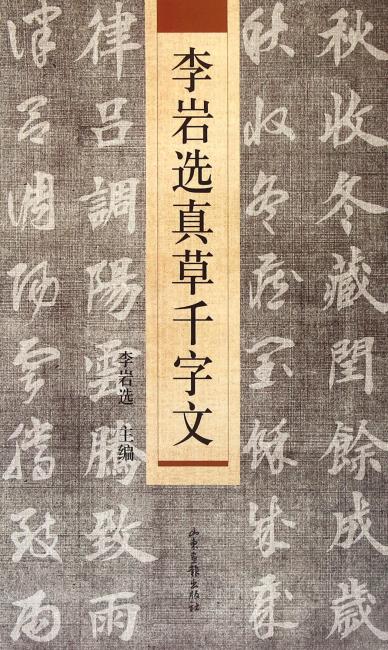 李岩选真草千字文
李岩选 主编
秋收冬藏閏餘成歲
秋收冬藏閏餘成歲
律呂調陽雲騰致雨
律呂調陽雲騰致雨
山東畫報出版社